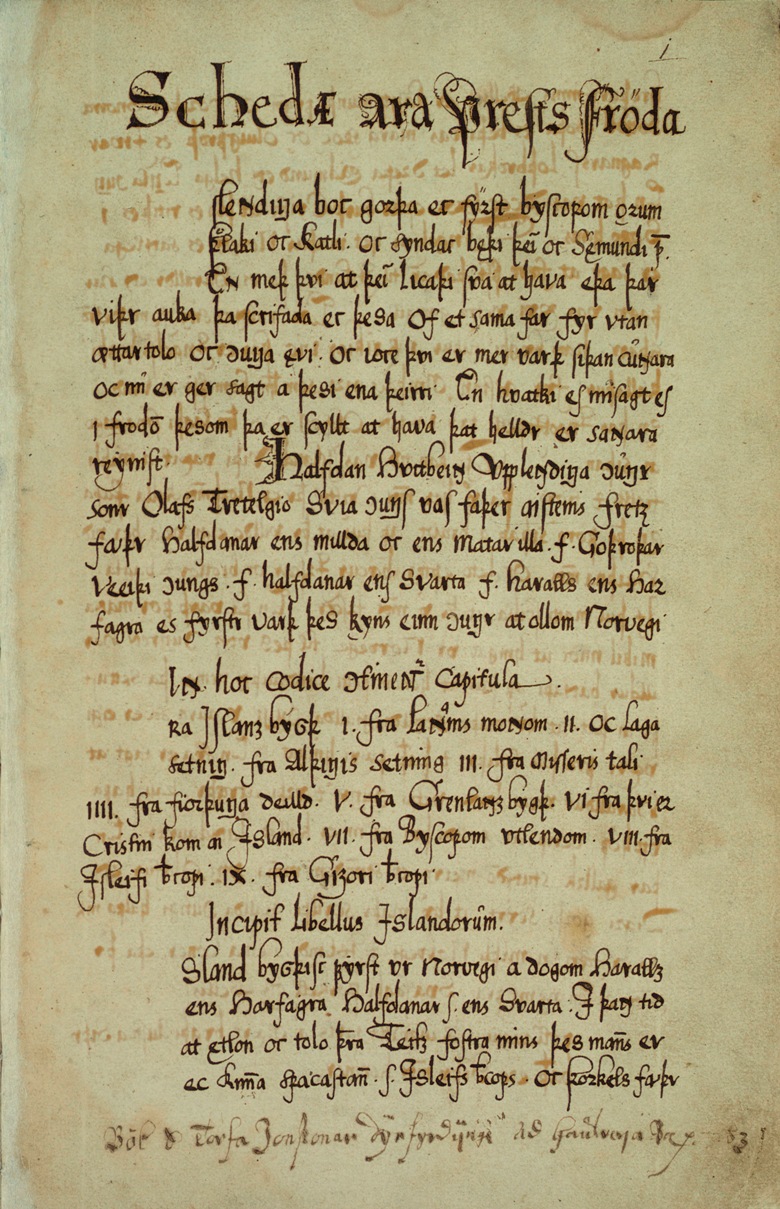 1
Schedæ ara prests fróda
slendiŋa boc gorþa ec fÿrst byscopom ǫrum
þlaki oc Katli. oc syndac bęþi þeī oc Sęmundi p̄.
En meþ þvi at þeī licaþi sva at hava eþa þar
viþr auka þa scrifada ec þesa of et sama far fyr utan
ættartolo oc ↄuŋa ęvi. oc iocc þvi er mer varþ siþan cūɴara
oc nū er ger sagt a þesi ena þeirri En hvatki es missagt es
i frodō þesom þa er scyllt at hava þat helldr er saɴara
reynist. Halfdan Hvitbeiɴ Upplendiŋa ↄūŋr
sonr Olafs Tretelgio Svia ↄuŋs vas faþer aisteins fretz
faþr Halfdanar ens millda oc ens matarilla. f. Goþroþar
Veiþi ↄungs. f. halfdanar ens Svarta f. haralls ens Har
fagra es fyrstr varþ þes kyns einn ↄuŋr at ollom Norvegi
Iɴ hoc codice ↄtineɴt Capitula
ra Islanz bygþ I. fra laɴāms moɴom. II. oc laga
setniŋ. fra Alþiŋis setning III. fra Misseris tali
IIII. fra fiorþuŋa deilld. V. fra Grenlanz bygþ. VI fra þvi er
Cristni kom ai Island. VII. fra Byscopom utlendom. VIII. fra
Isleifi b̄copi. IX. fra Gizori b̄copi
Incipit libellus Islandorūm.
Sland bygþisc fyrst ur Norvegi a dogom Haralz
ens Harfagra Halfdanar s. ens Svarta. I þaɴ tid
at ętlon oc tolo þra Teitz fostra mins þes mans er
ec kuɴa spacastan. s. Isleifs b̄cops. Oc þorkels faþr
Bök Torfa Jonssonar ad